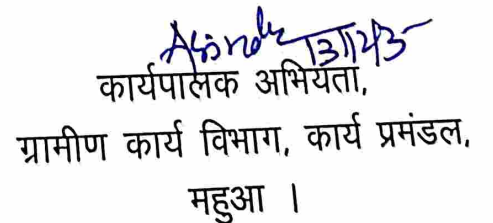 कार्यपालक अभियंता,
ग्रामीण कार्य विभाग, कार्य प्रमंडल,
महुआ ।